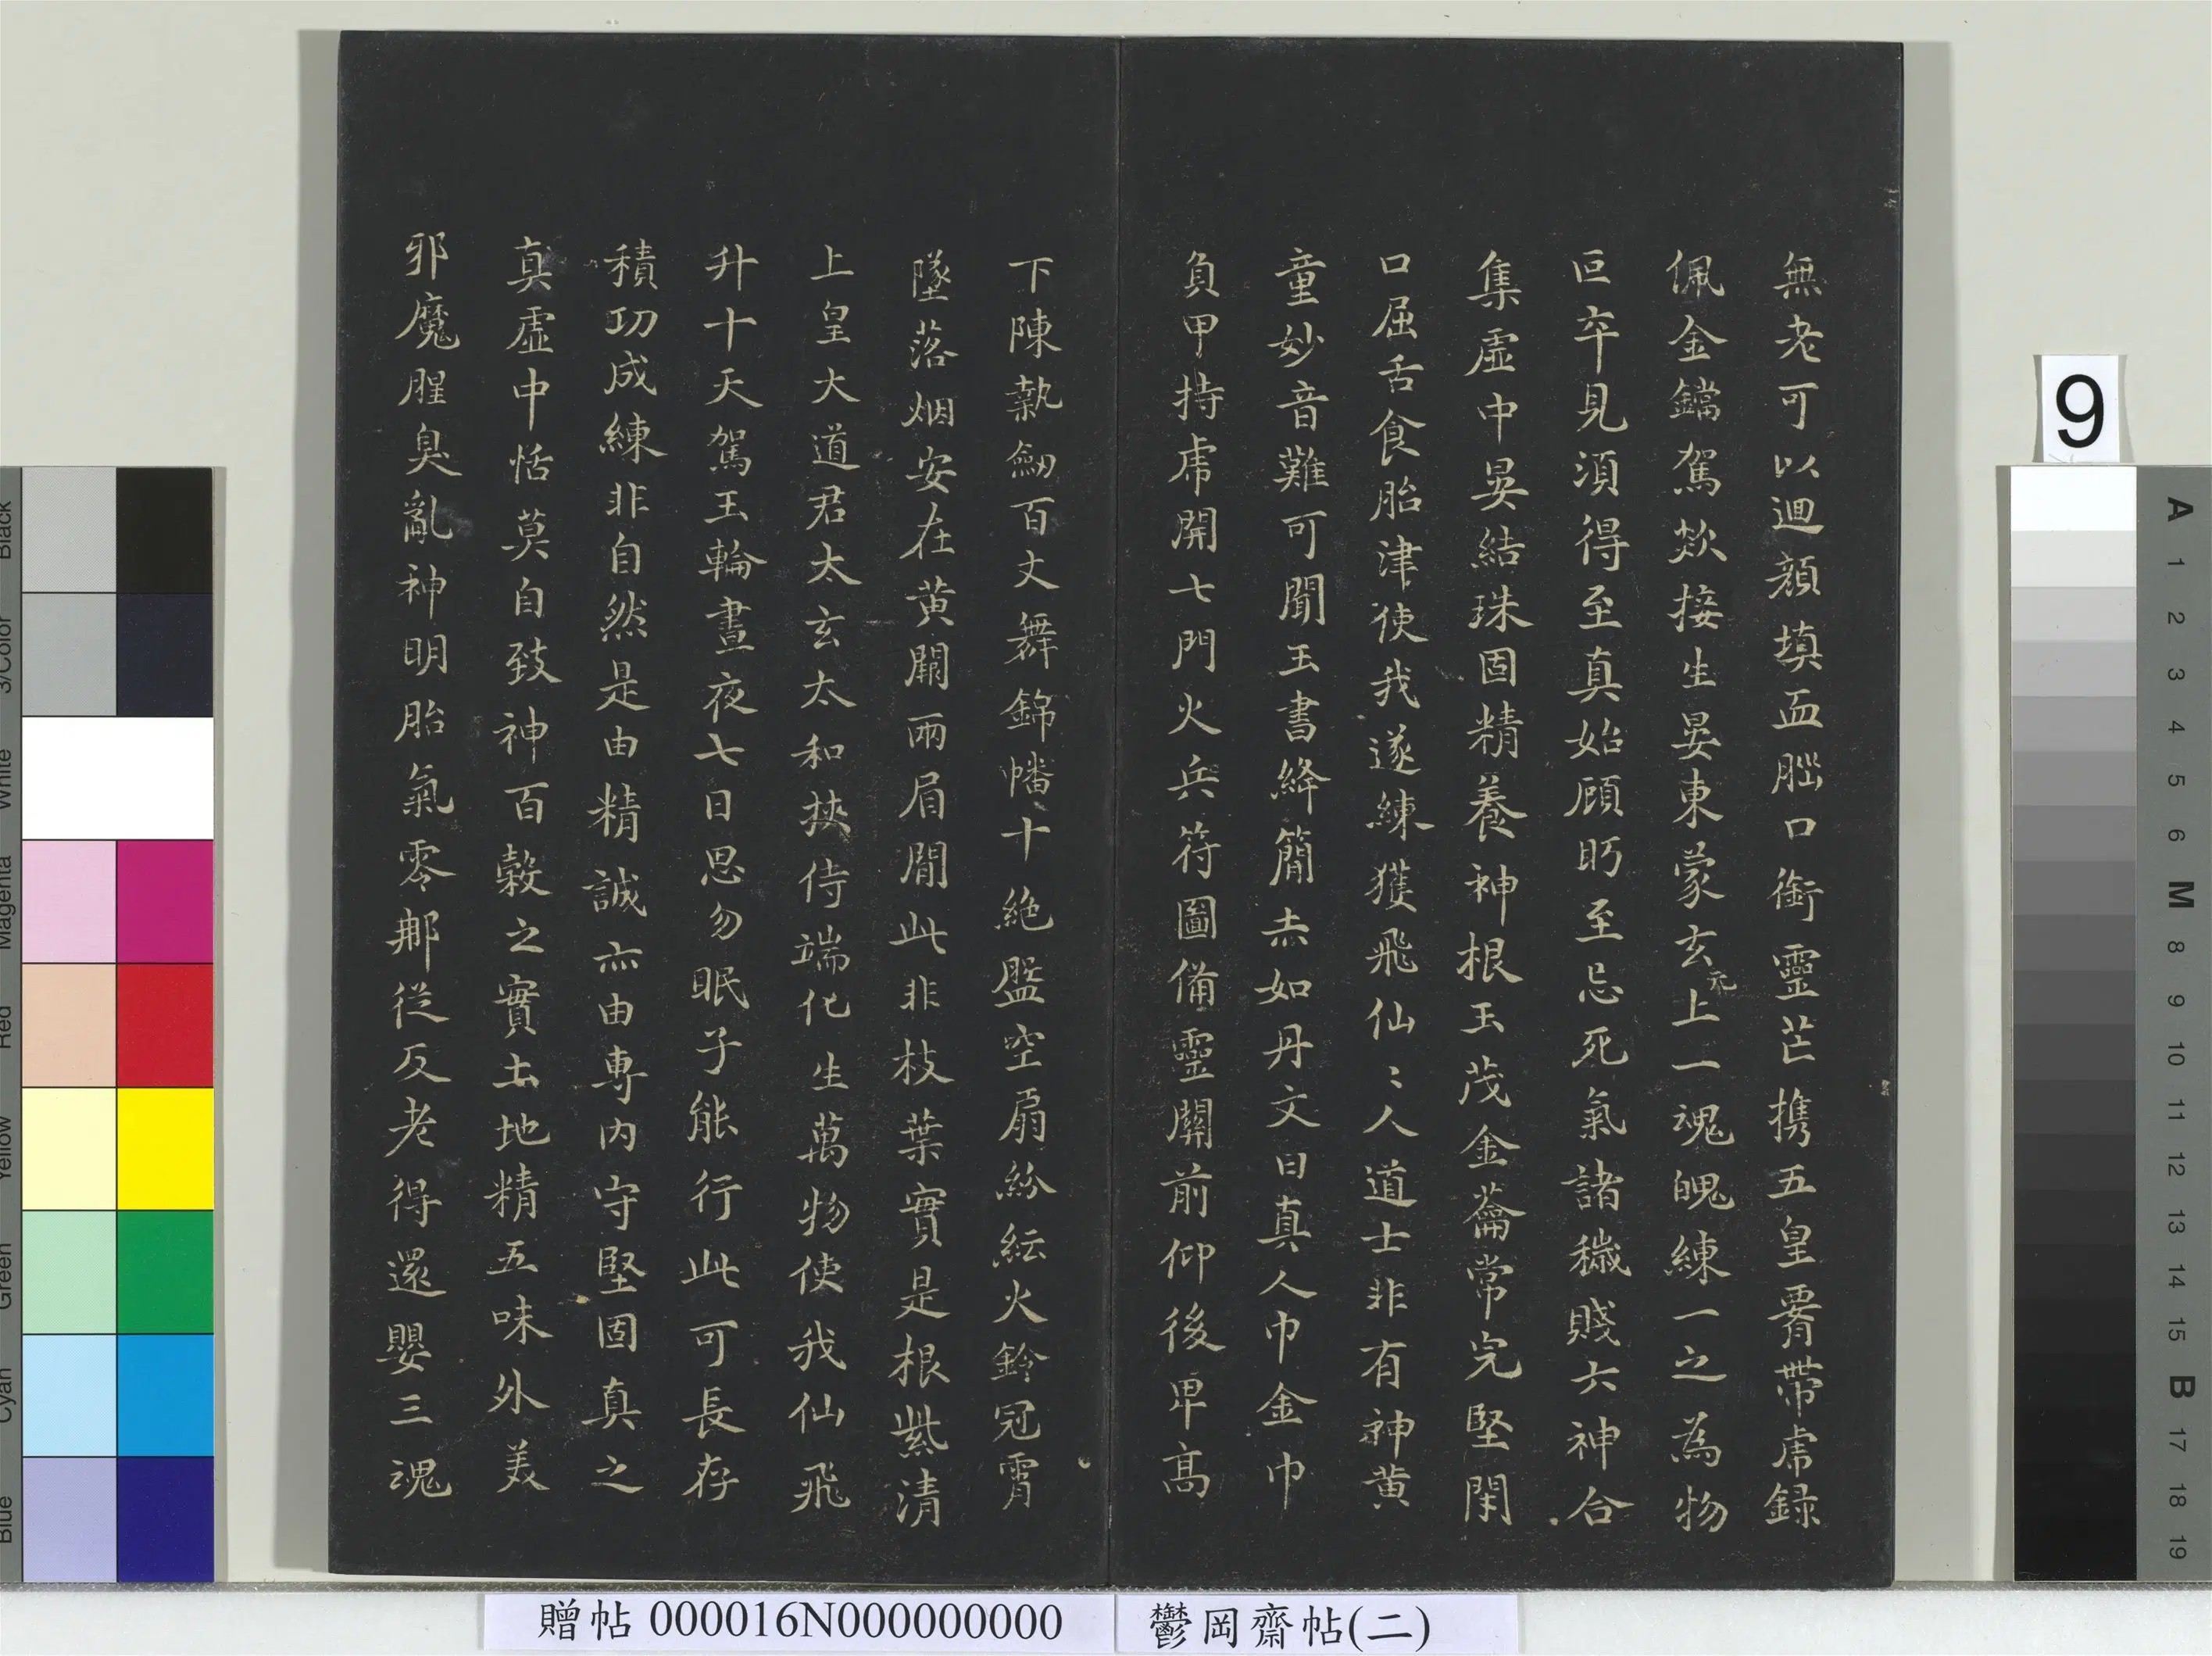 無老可以迴顏填血腦口銜靈芒携五皇要帶虎錄
佩金鐺駕欻接生晏東蒙玄元上一魂魄練一之為物
叵卒見須得至真始顧眄至忌死氣諸穢賤六神合
集虛中晏結珠固精養神根玉茂金籥常完堅閉
口屈舌食胎津使我遂練獲飛仙〻人道士非有神黄
童妙音難可聞玉書絳簡赤如丹文曰真人巾金巾
負甲持虎開七門火兵符圖備靈關前仰後卑高
下陳執劒百丈舞錦幡十絕盤空扇紛紜火鈴冠霄
墜落烟安在黄闕兩眉間此非枝葉實是根紫清
上皇大道君太玄太和挾侍端化生萬物使我仙飛
升十天駕玉輪晝夜七日思勿眠子能行此可長存
積功成練非自然是由精誠亦由專內守堅固真之
真虛中恬莫自致神百穀之實土地精五味外美
邪魔腥臭亂神明胎氣零那從反老得還嬰三魂
9
贈帖 000016N000000000
鬱岡齋帖(二)
Black
3/Color
White
Magenta
Red
Yellow
Green
Cyan
Blue
A
1
2
3
4
5
6
M
8
9
10
11
12
13
14
15
B
17
18
19